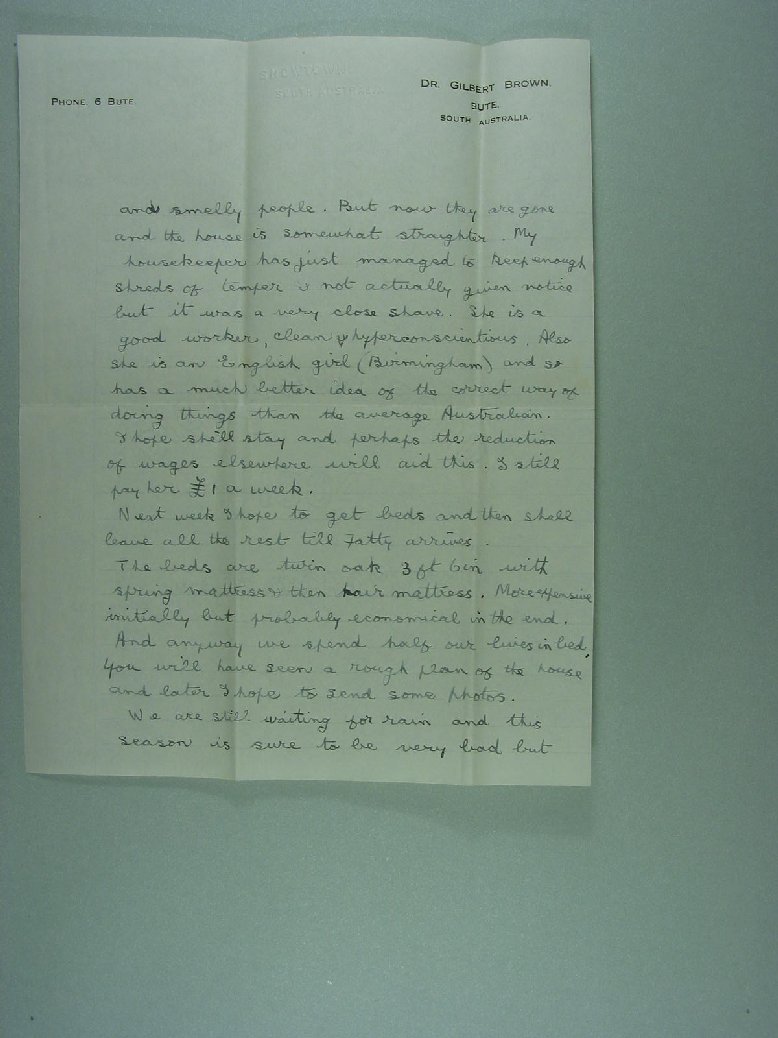 SNOWTOWN
SOUTH AUSTRALIA
PHONE. 6 BUTE.
DR. GILBERT BROWN.
BUTE.
SOUTH AUSTRALIA.
and smelly people. But now they are gone
and the house is somewhat straighter. My
housekeeper has just managed to keep enough
shreds of temper & not actually given notice
but it was a very close shave. She is a
good worker, clean & hyperconscientious. Also
she is an English girl (Birmingham) and so
has a much better idea of the correct way of
doing things than the average Australian.
I hope she'll stay and perhaps the reduction
of wages elsewhere will aid this. I still
pay her £1 a week.
Next week I hope to get beds and then shall
leave all the rest till Fatty arrives.
The beds are twin oak 3 ft 6 in with
spring mattress & then hair mattress. More expensive
initially but probably economical in the end.
And anyway we spend half our lives in bed.
You will have seen a rough plan of the house
and later I hope to send some photos.
We are still waiting for rain and this
season is sure to be very bad but